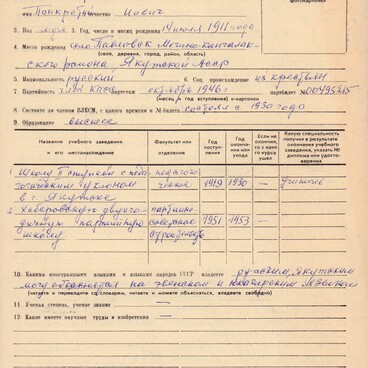 фотокарточки
имя Панкратий отчество Иович
2. Пол муж 3. Год, число и месяц рождения 14 июля 1911 года
4. Место рождения село Павловск Мегино-кангалас-
(село, деревня, город, район, область)
ского района Якутской АССР
5. Национальность русский 6. Соц. происхождение из крестьян
7. Партийность член КПСС партстаж октябрь 1946 г. партбилет № 00495315
(месяц и год вступления) и-карточки
8. Состоите ли членом ВЛКСМ, с какого времени и № билета состоял с 1930 года
9. Образование высшее
Название учебного заведения и его местонахождение
Факультет или отделение
Год поступления
Год окончания или ухода
Если не окончил, то с какого курса ушел
Какую специальность получил в результате окончания учебного заведения, указать № диплома или удостоверения
1 Школу II ступени с педа- педагоги- 1919 1930 — учителя
гогическим уклоном ческое
в г. Якутске
2 Хабаровскую двухго- партийно- 1951 1953 —
дичную партийную советское
школу строительство
10. Какими иностранными языками и языками народов СССР владеете русским, якутским
могу объясняться на эвенском и юкагирском языках
(читаете и переводите со словарем, читаете и можете объясняться, владеете свободно)
11. Ученая степень, ученое звание —
12. Какие имеете научные труды и изобретения —